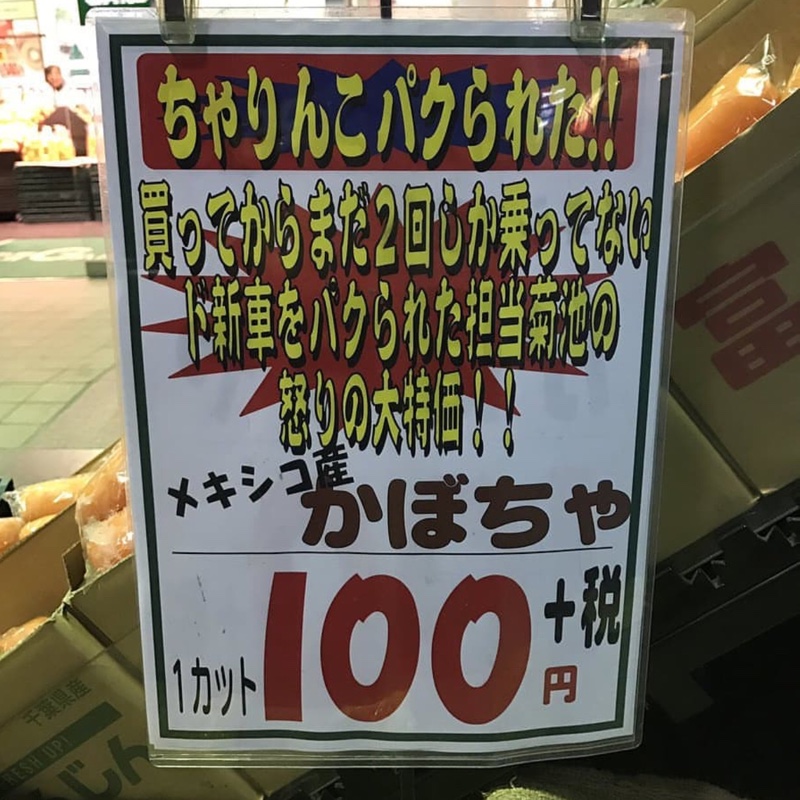 ちゃりんこパクられた!!
買ってからまだ2回しか乗ってない
ド新車をパクられた担当菊池の
怒りの大特価!!
メキシコ産
かぼちゃ
1カット100円+税
富
千葉県産
FRESH UP!
んじん